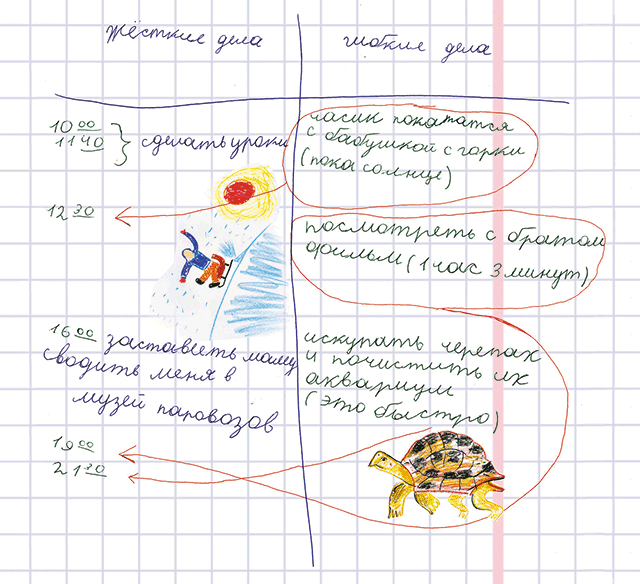 жёсткие дела
гибкие дела
10 00
11 40
сделать уроки
часик покататся
с бабушкой с горки
(пока солнце)
12 30
посмотреть с братом
фильм (1 час 3 минут)
16 00 заставить маму
сводить меня в
музей паровозов
искупать черепах
и почистить их
аквариум
(это быстро)
19 00
21 30